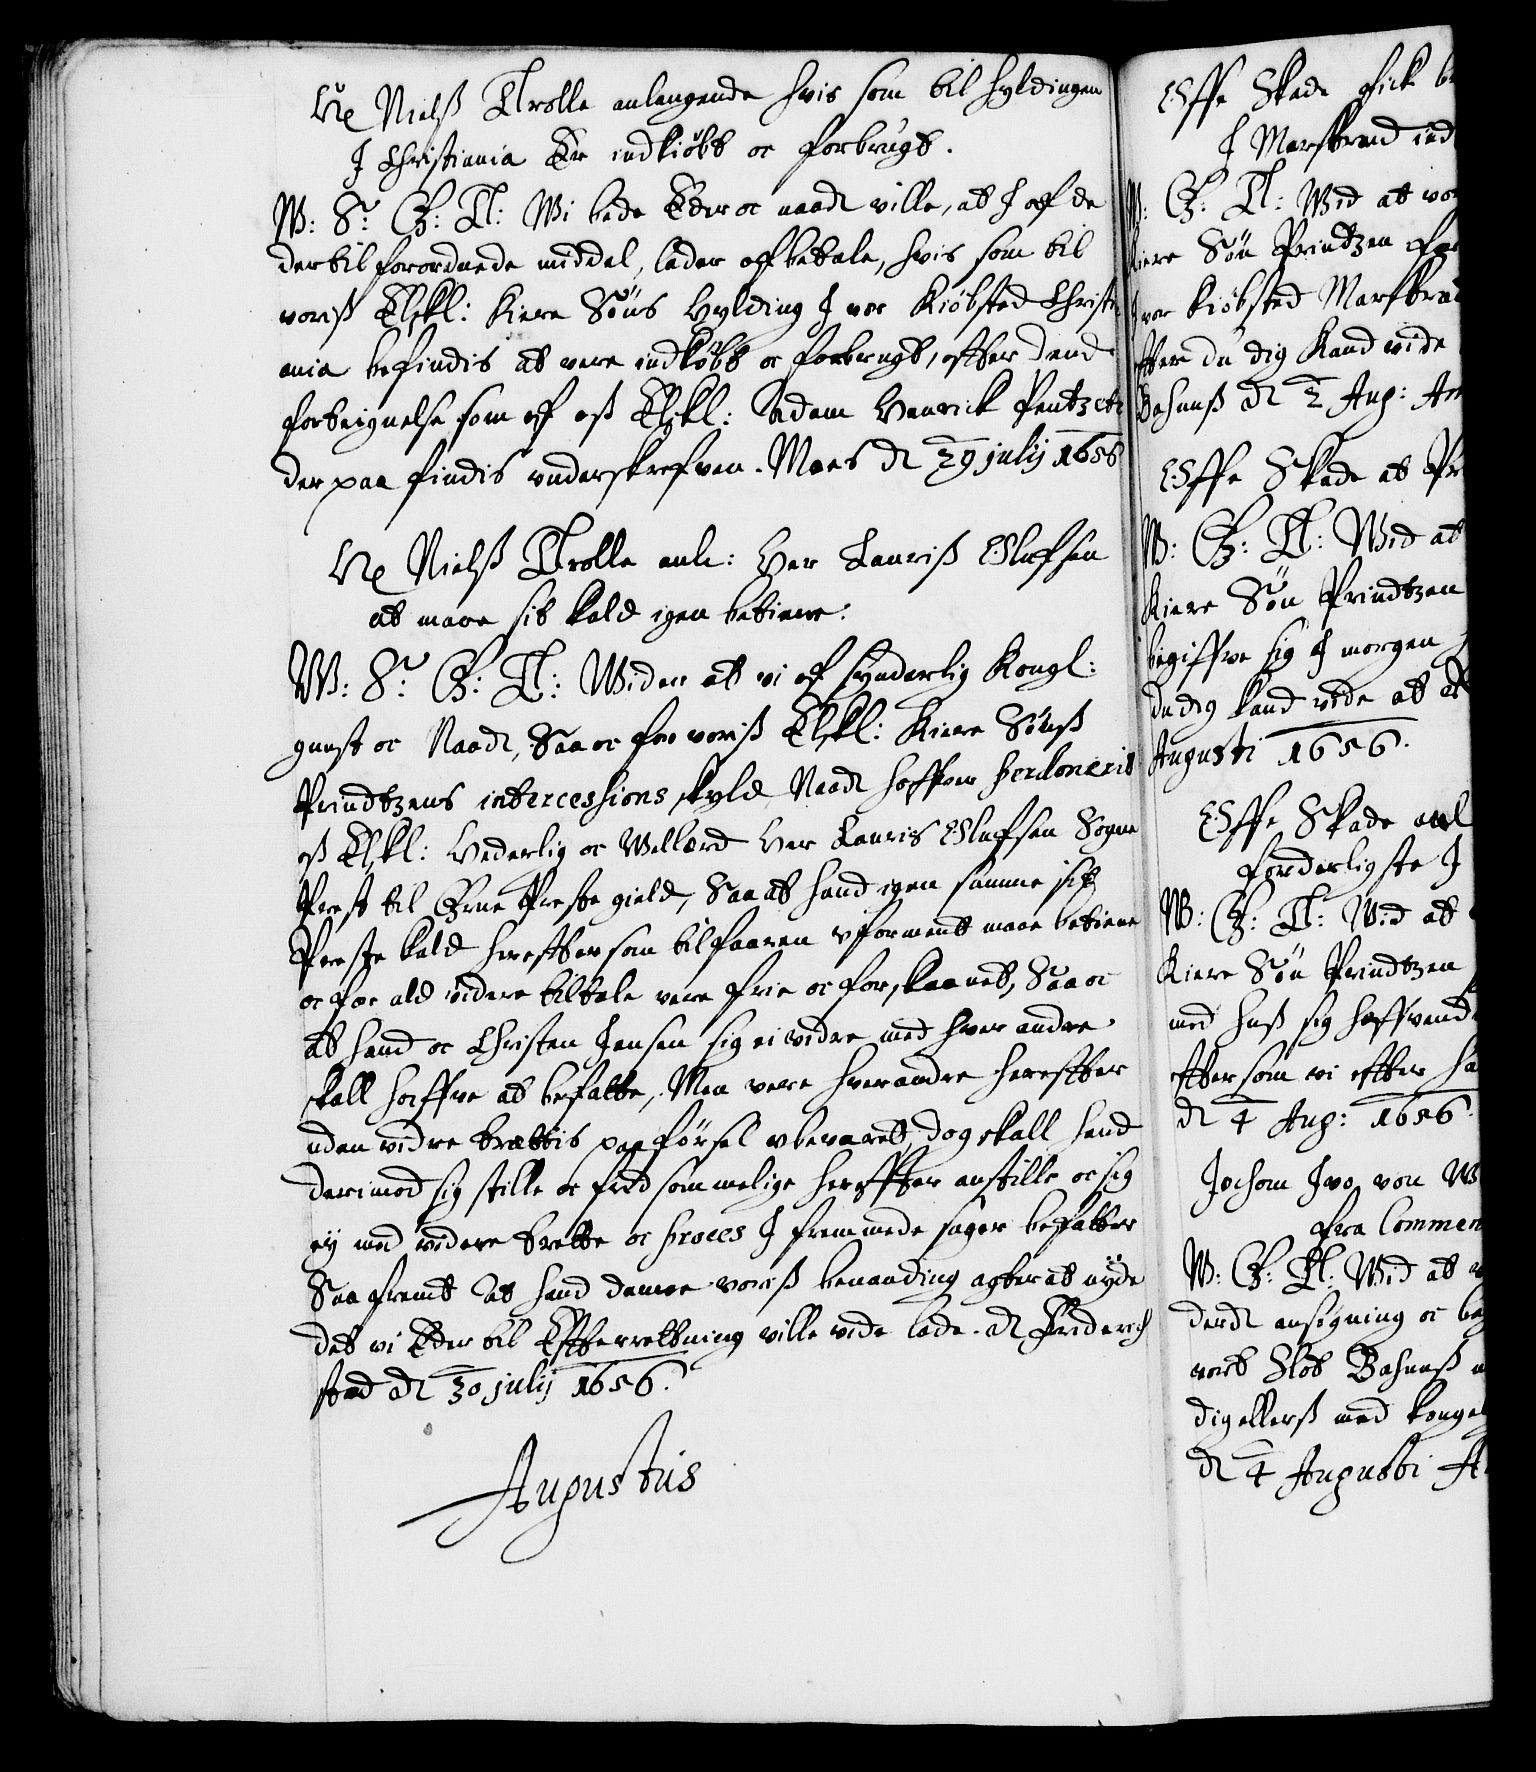 Nielß Trolle anlangende hvis som til hyldingen
J Christiania Er indkiöbt oc forbrugt.
W: S: G: T: Wi bede Eder oc naadl ville, at J af de
dertil forordnede middel, lader afbetale, hvis som til
voriß Elskl: Kiere Söns Hylding J vor Kiöbsted Christi
ania befindis at vere indköbt oc forbrugt, efter dend
forteignelse som af oß Elskl: Adam Henrick Pentzen
der paa findis underskrefven. Moes dl 29 julij 1656
Nielß Trolle anl: Her Lauriß Olufsen
at maae sit kald igen betiene.
W: S: G: T: Wider at vi af synderlig Kongl:
gunst oc Naade, Saa oc for voriß Elskl: Kiere Sönß
Prindtzens intercessions skyld Naadl hafver perdonerit
oß Elskl: Hederlig oc Wellærd Her Lauris Olufsen Sogne
Prest til Præstegield, Saa at hand igen samme sit
Præste kald herefter som tilfaaren uforment maae betiene
oc for ald videre tiltale vere frie oc forskaanet, Saa oc
at hand oc Christen Jensen sig ei vidre med hver andre
skall haffve at befatte, Men vere hverandre herefter
uden vidre trættis paaførsel ubevarett, dog skall hand
derimod sig stille oc fredsommelige hereffter anstille oc sig
ej med videre trette oc proces J fremmede sager befatter
Saa fremt at hand denne voriß benaading agter at nyde
det vi Eder til Efterrettning ville vide lade. dl Friderich
stad dl 30 julij 1656.
Augustus
Offe Skade fick
J Marstrand ind
W: G: T: Wid at vor
Kiere Sön Printzen for
J vor kiöbsted Marstrand
efter du dig kand vide
Bahuuß dl 2 Aug:
Offe Skade at
W: G: T: Wid at
Kiere Sön Prindtzen
begiffve sig J morgen
du dig kand vide at
Augusti 1656.
Offe Skade anl
forderligste J
W: G: T: Wid at
Kiere Sön Prindtzen
med huß sig haffvend
eftersom vi efter ha
dl 4 Aug: 1656.
Jochom Ivo von
fra Commen
W: G: T: Wid at
derdl ansögning oc beg
vort Slot Bahuuß
dig ellerß med kongel
dl 4 Augusti